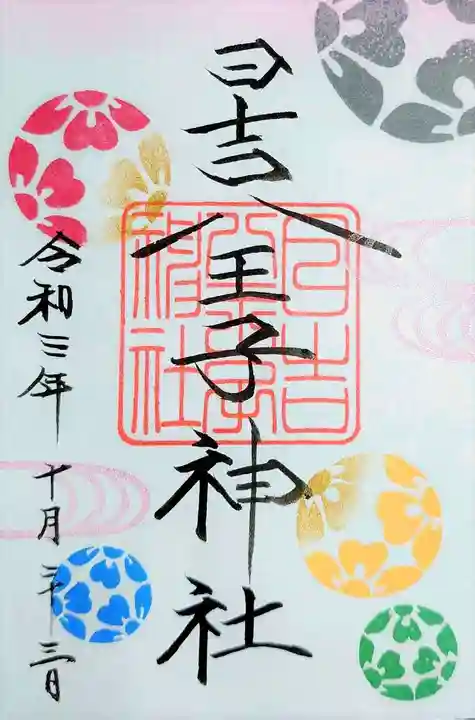 日吉八王子神社
日吉
八王子
神社
令和三年 十月二十三日